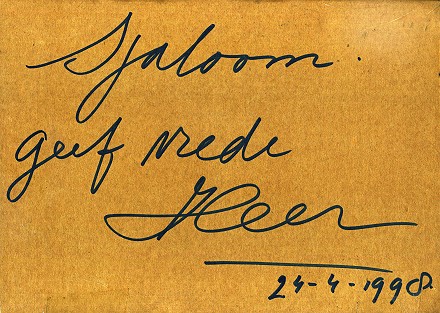 Sjaloom.
geef vrede
Heer
24-4-1998.